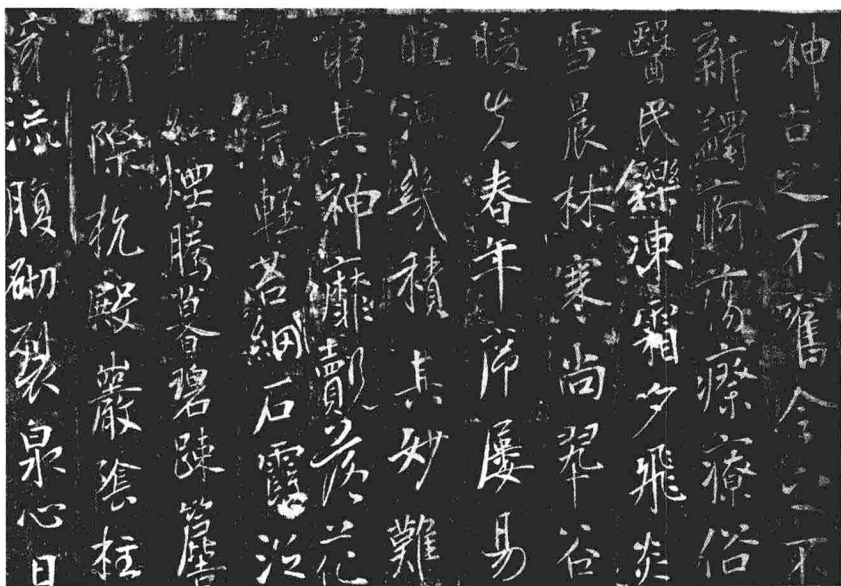 神古之不舊今之不
新蠲痾蕩瘵療俗
醫民鑠凍霜夕飛炎
雪晨林寒尚翠谷
暖先春年序屢易
暄涼幾積其妙難
窮其神靡覿落花
纈岸輕苔網石霞泛
朝紅煙騰暮碧疎簷
嶺際抗殿巖陰柱
穿流腹砌裂泉心日